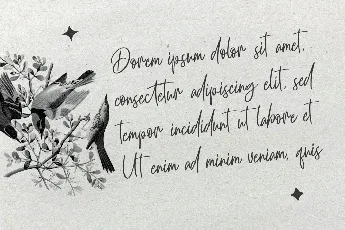 Dorem ipsum dolor sit amet,
consectetur adipiscing elit, sed
tempor incididunt ut labore et
Ut enim ad minim veniam, quis